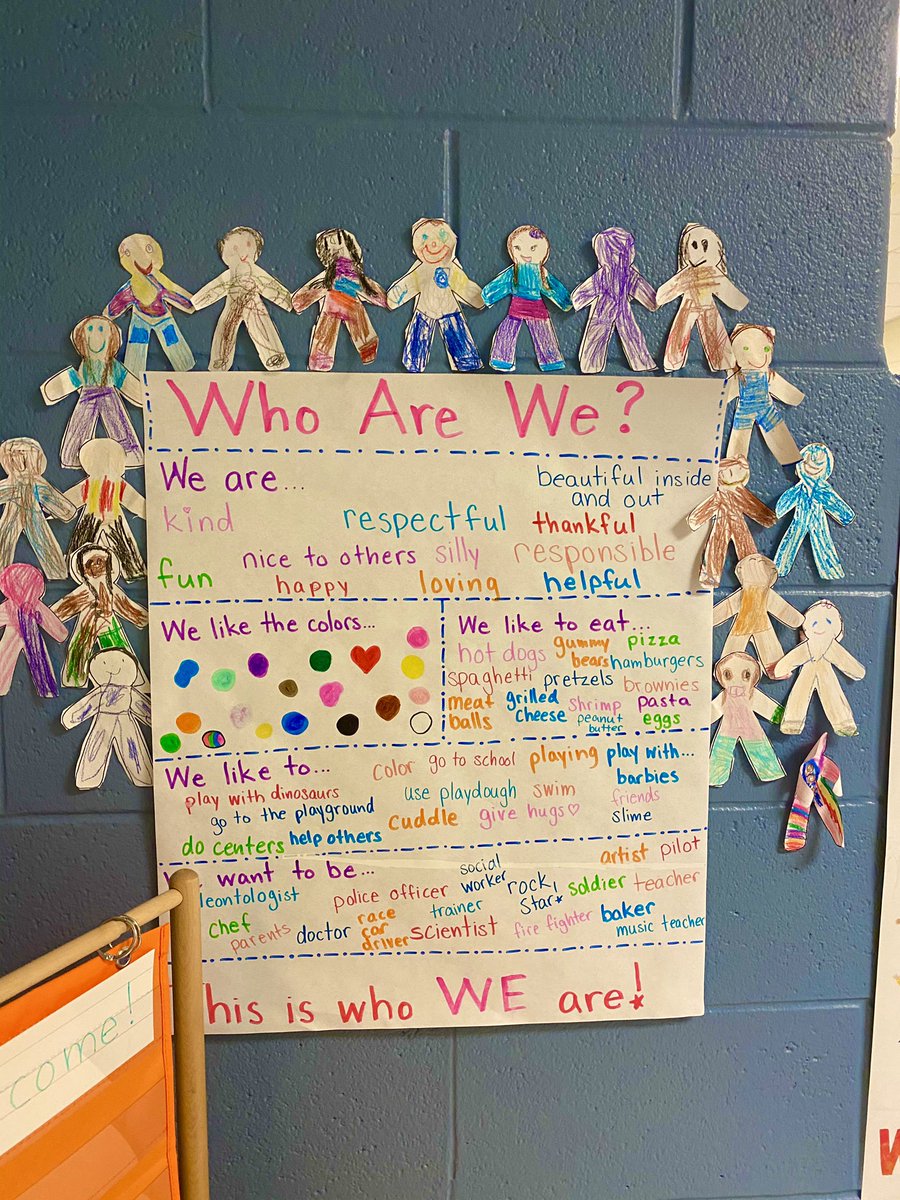 Who Are We?
We are...
beautiful inside
and out
kind
respectful
thankful
nice to others
silly
responsible
fun
happy
loving
helpful
We like the colors...
We like to eat...
hot dogs
gummy
bears
pizza
hamburgers
spaghetti
pretzels
brownies
meat
balls
grilled
cheese
shrimp
peanut
butter
pasta
eggs
We like to...
color
go to school
playing
play with...
barbies
friends
slime
play with dinosaurs
use playdough
swim
go to the playground
cuddle
give hugs
do centers
help others
want to be...
leontologist
police officer
social
worker
rock
star
artist
pilot
soldier
teacher
chef
parents
doctor
race
car
driver
trainer
scientist
fire fighter
baker
music teacher
his is who WE are!
come!